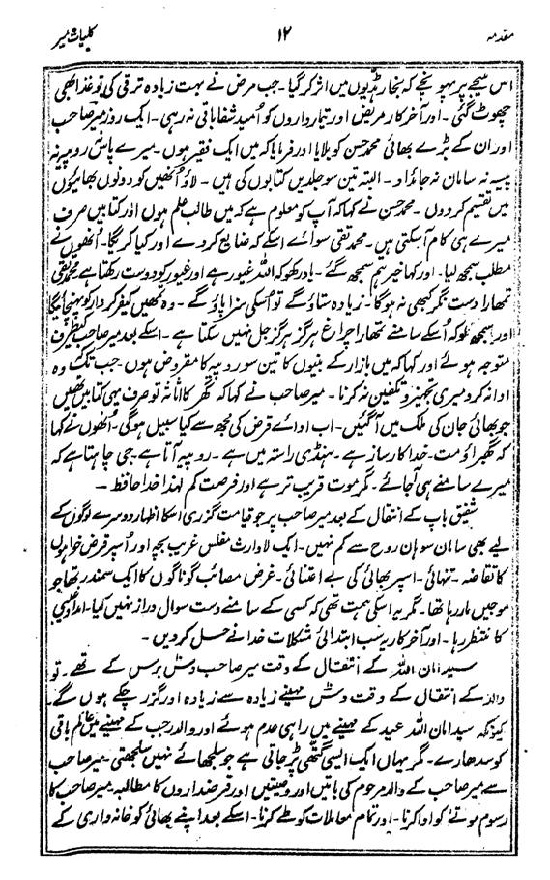 مقدمہ ۱۲ کلیات میر
اس نتیجے پر پہونچے کہ بخار ہڈیوں میں اثر کر گیا۔ جب مرض نے بہت زیادہ ترقی کی تو غذا بھی
چھوٹ گئی۔ اور آخر کار مریض اور تیمارداروں کو اُمید شفا باقی نہ رہی۔ ایک روز میر صاحب
اور ان کے بڑے بھائی محمد حسن کو بلایا اور فرمایا کہ میں ایک فقیر ہوں۔ میرے پاس روپیہ نہ
پیسہ نہ سامان نہ جائداد۔ البتہ تین سو جلدیں کتابوں کی ہیں۔ لاؤ اُنھیں کو دونوں بھائیوں
میں تقسیم کر دوں۔ محمد حسن نے کہا کہ آپ کو معلوم ہے کہ میں طالب علم ہوں اور کتابیں صرف
میرے ہی کام آ سکتی ہیں۔ محمد تقی سوائے اسکے کہ ضایع کر دے اور کیا کرے گا۔ اُنھوں نے
مطلب سمجھ لیا۔ اور کہا خیر ہم سمجھ گئے۔ یاد رکھو کہ اللہ غیور ہے اور غیور کو دوست رکھتا ہے محمد تقی
تمھارا دست نگر کبھی نہ ہوگا۔ زیادہ ستاؤ گے تو اُسکی سزا پاؤ گے۔ وہ تمھیں کیفر کردار کو پہنچائیگا
اور سمجھ لو کہ اُسکے سامنے تمھارا چراغ ہرگز ہرگز جل نہیں سکتا ہے۔ اسکے بعد میر صاحب کیطرف
متوجہ ہوئے اور کہا کہ میں بازار کے بنیوں کا تین سو روپیہ کا مقروض ہوں۔ جب تک وہ
ادا نہ کرو میری تجہیز و تکفین نہ کرنا۔ میر صاحب نے کہا کہ گھر کا اثاثہ تو صرف یہی کتابیں تھیں
جو بھائی جان کی ملک میں آگئیں۔ اب ادائے قرض کی مجھ سے کیا سبیل ہوگی۔ اُنھوں نے کہا
کہ گھبراؤ مت۔ خدا کارساز ہے۔ ہنڈی راستہ میں ہے۔ روپیہ آتا ہے۔ جی چاہتا ہے کہ
میرے سامنے ہی آجائے۔ مگر موت قریب تر ہے اور فرصت کم لہذا خدا حافظ۔
شفیق باپ کے انتقال کے بعد میر صاحب پر جو قیامت گزری اُسکا اظہار دوسرے لوگوں کے
لیے بھی سامان سوہان روح سے کم نہیں۔ ایک لاوارث مفلس غریب بچہ اور اُسپر قرض خواہوں
کا تقاضہ۔ تنہائی۔ اسپر بھائی کی بے اعتنائی۔ غرض مصائب گوناگوں کا ایک سمندر تھا جو
موجیں مار رہا تھا۔ مگر یہ اسکی ہمت تھی کہ کسی کے سامنے دست سوال دراز نہیں کیا۔ امداد غیبی
کا منتظر رہا۔ اور آخر کار یہ سب ابتدائی مشکلات خدا نے حل کر دیں۔
سید امان اللہ کے انتقال کے وقت میر صاحب دس برس کے تھے۔ تو
والد کے انتقال کے وقت دس مہینے زیادہ سے زیادہ اور گزر چکے ہوں گے۔
کیونکہ سید امان اللہ عید کے مہینے میں راہی عدم ہوئے اور والد رجب کے مہینے میں عالم باقی
کو سدھارے۔ مگر یہاں ایک ایسی گتھی پڑ جاتی ہے جو سلجھائے نہیں سلجھتی۔ میر صاحب
سے میر صاحب کے والد مرحوم کی باتیں اور وصیتیں اور قرضداروں کا مطالبہ۔ میر صاحب کا
رسوم موتے کو ادا کرنا۔ اور تمام معاملات کو طے کرنا۔ اسکے بعد اپنے بھائی کو خانہ داری کے